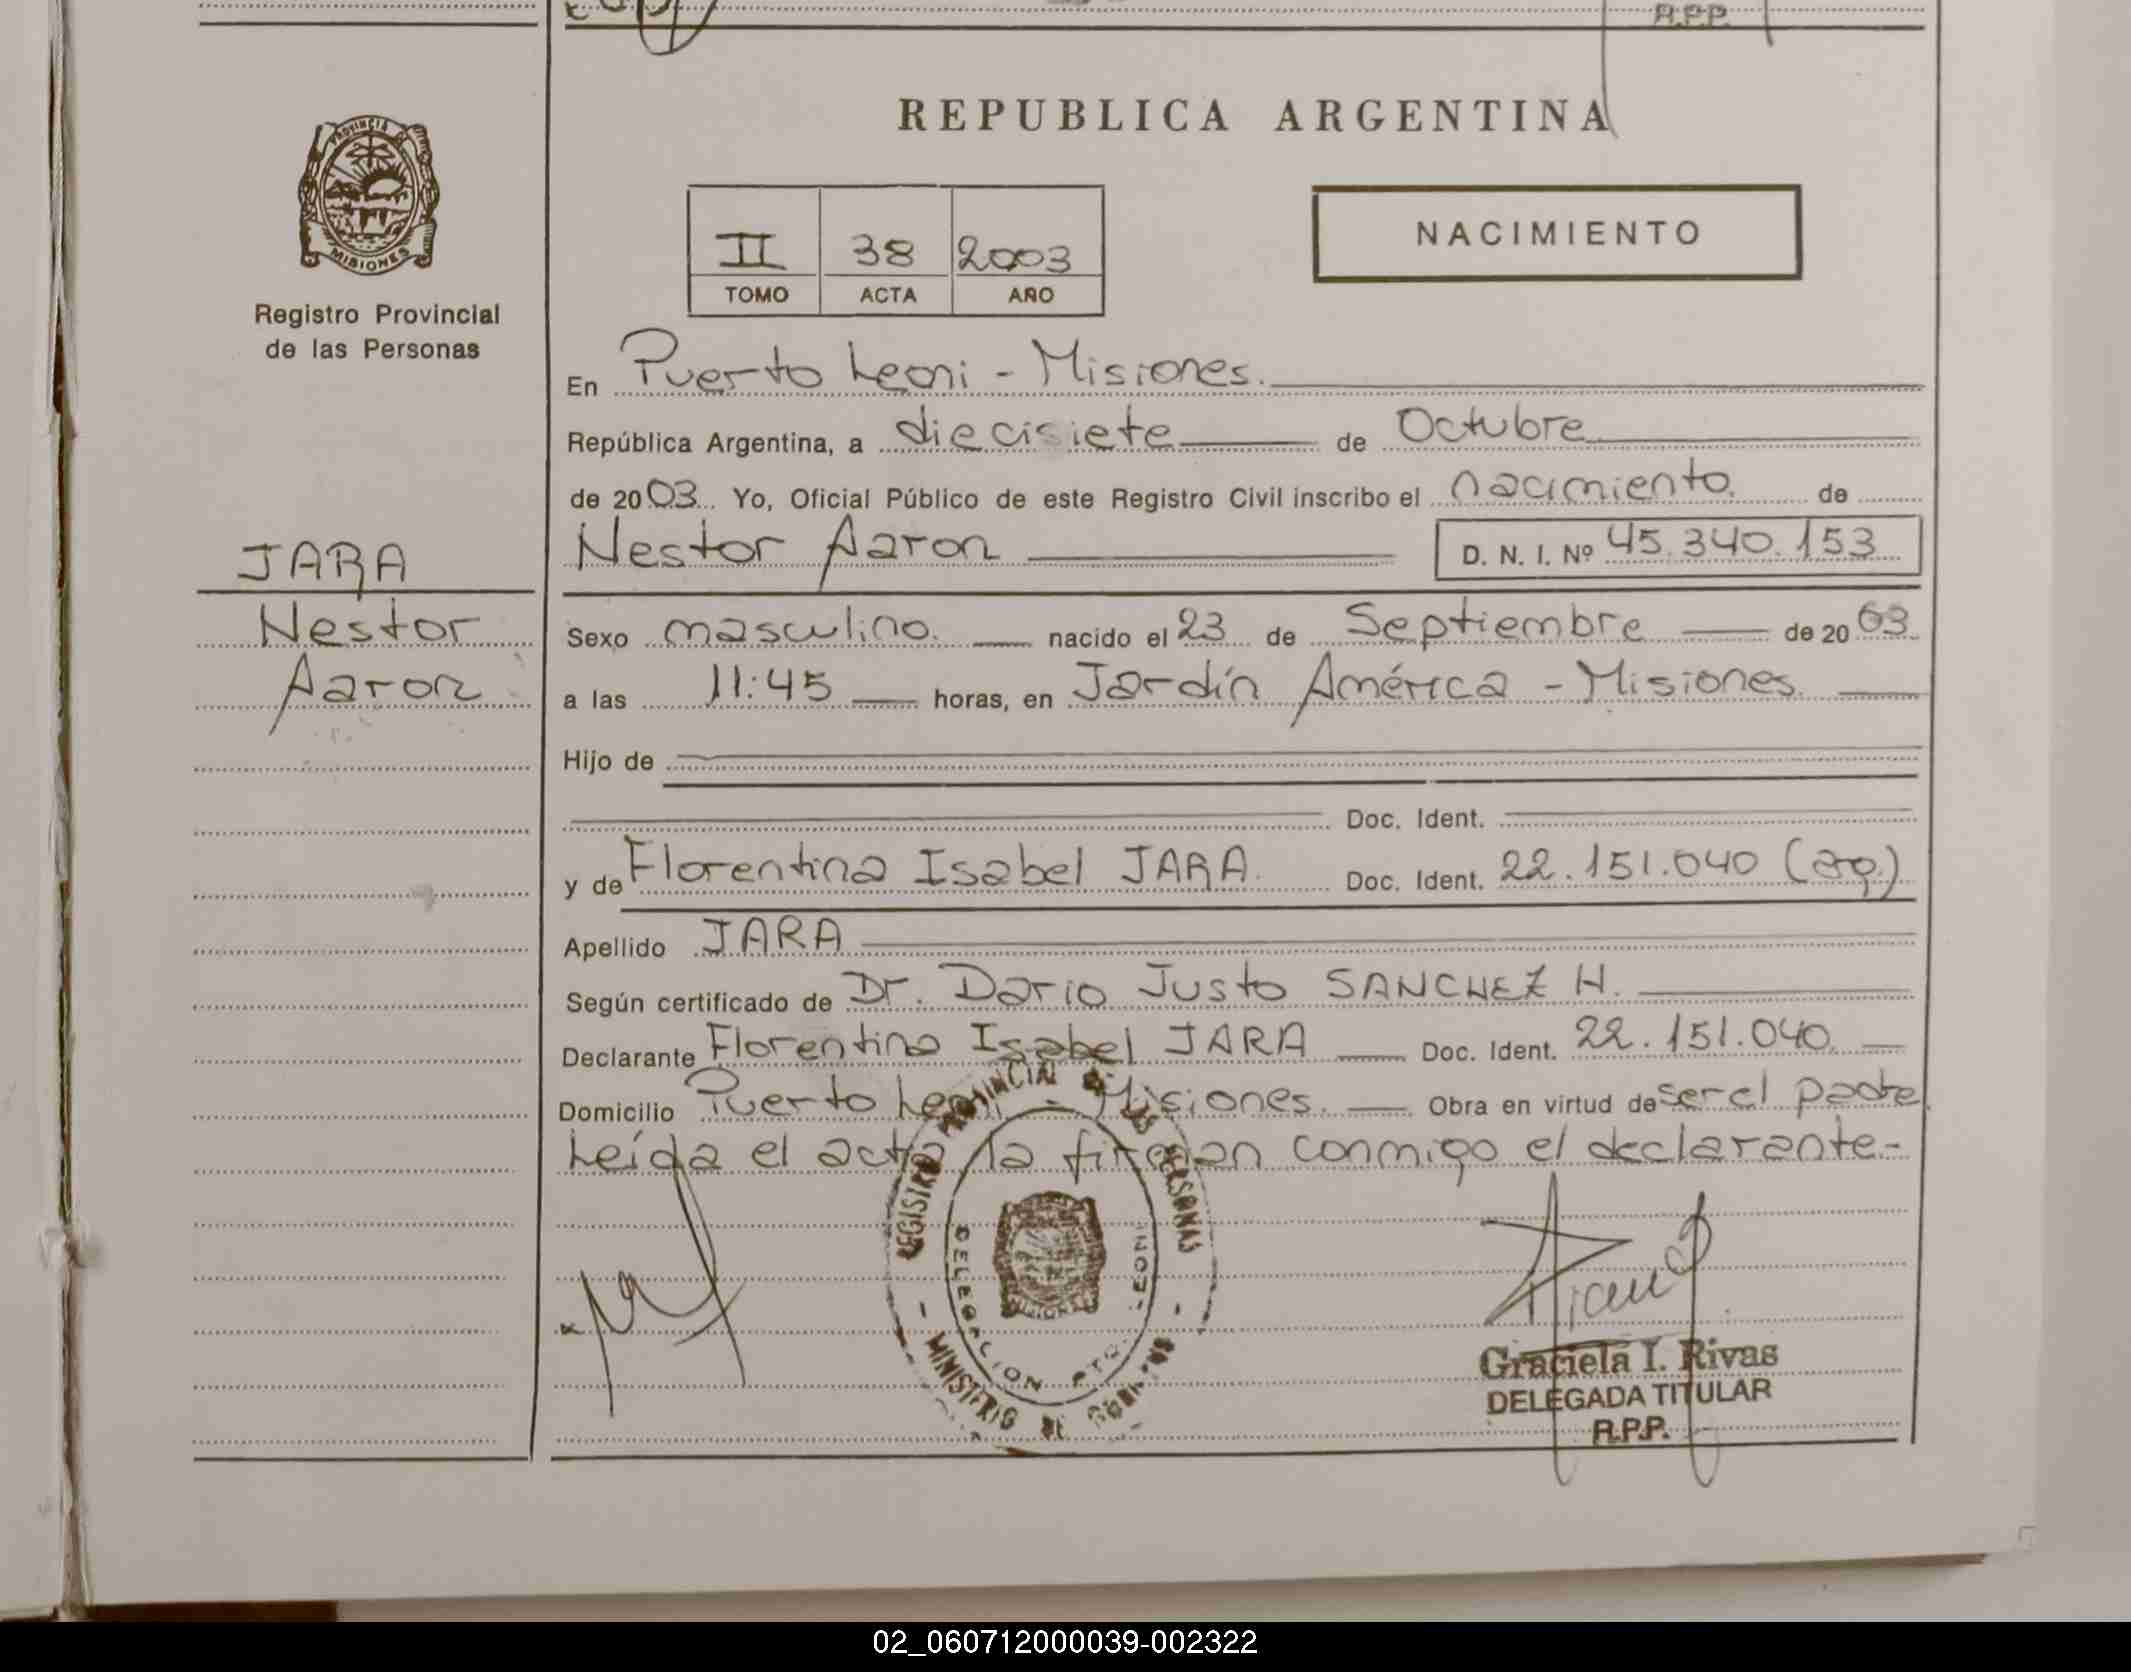 R.P.P.
REPUBLICA ARGENTINA
PROVINCIA DE
MISIONES
Registro Provincial
de las Personas
II 38 2003
TOMO ACTA AÑO
NACIMIENTO
En Puerto Leoni - Misiones.
República Argentina, a diecisiete de Octubre
de 2003. Yo, Oficial Público de este Registro Civil inscribo el nacimiento. de
JARA
Nestor Aaron D. N. I. Nº 45.340.153
Nestor
Sexo masculino. nacido el 23 de Septiembre de 2003.
Aaron
a las 11:45 horas, en Jardín América - Misiones.
Hijo de
Doc. Ident.
y de Florentina Isabel JARA. Doc. Ident. 22.151.040 (arg.)
Apellido JARA
Según certificado de Dr. Dario Justo SANCHEZ H.
Declarante Florentina Isabel JARA Doc. Ident. 22.151.040.
Domicilio Puerto Leoni - Misiones. Obra en virtud de ser el padre
Leída el acta la firman conmigo el declarante-
REGISTRO PROVINCIAL DE LAS PERSONAS
DELEGACION PTO. LEONI
- MINISTERIO DE GOBIERNO -
Graciela I. Rivas
DELEGADA TITULAR
R.P.P.
02_060712000039-002322